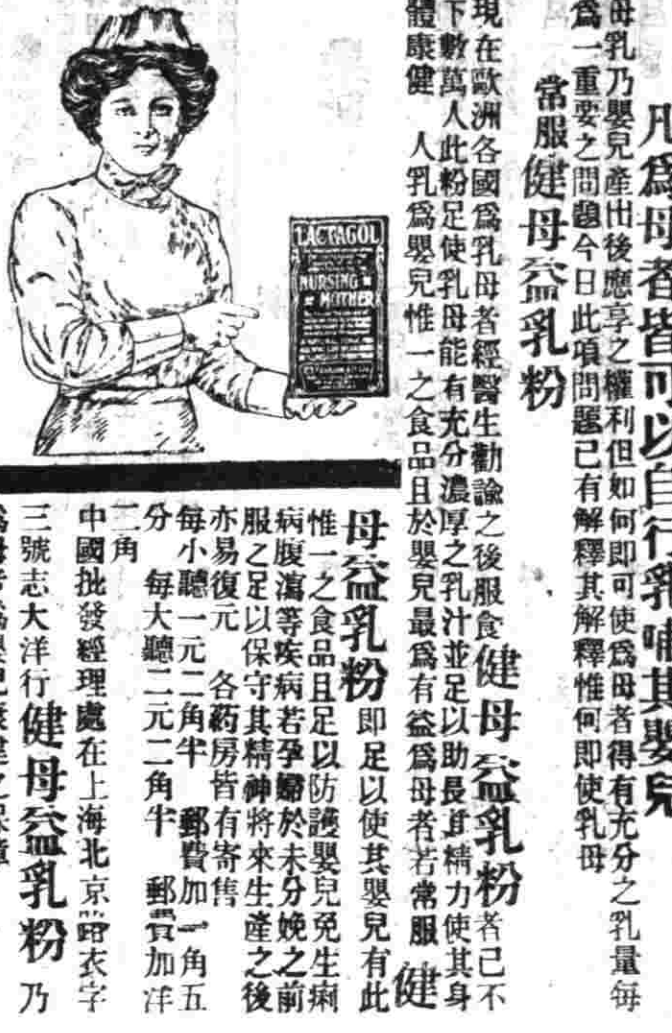 凡爲母者皆可以自行乳哺其嬰兒
母乳乃嬰兒產出後應享之權利但如何即可使爲母者得有充分之乳量每
爲一重要之問題今日此項問題已有解釋其解釋惟何即使乳母
常服健母益乳粉
現在歐洲各國爲乳母者經醫生勸諭之後服食健母益乳粉者已不
下數萬人此粉足使乳母能有充分濃厚之乳汁並足以助長其精力使其身
體康健 人乳爲嬰兒惟一之食品且於嬰兒最爲有益爲母者若常服健
母益乳粉即足以使其嬰兒有此
惟一之食品且足以防護嬰兒免生痢
病腹瀉等疾病若孕婦於未分娩之前
服之足以保守其精神將來生產之後
亦易復元 各葯房皆有寄售
每小聽一元二角半 郵費加一角五
分 每大聽二元二角半 郵費加洋
二角
中國批發經理處在上海北京路衣字
三號志大洋行健母益乳粉乃
爲母者爲嬰兒康健之保障
LACTAGOL
NURSING
MOTHER